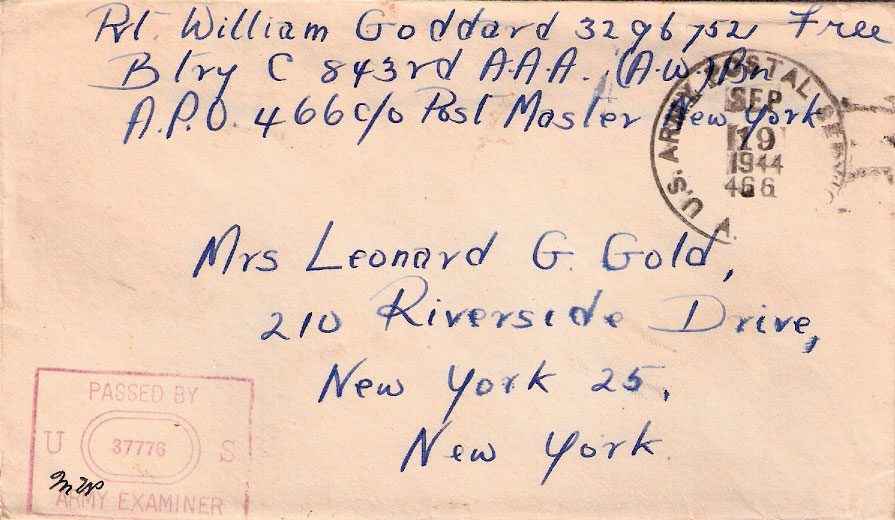 Pvt. William Goddard 3296752 Free
Btry C 843rd A.A.A. (A.W.) Bn
A.P.O. 466 c/o Post Master New York
U.S. ARMY POSTAL SERVICE
SEP
19
1944
466
Mrs Leonard G. Gold,
210 Riverside Drive,
New York 25,
New York.
PASSED BY
U 37776 S
ARMY EXAMINER